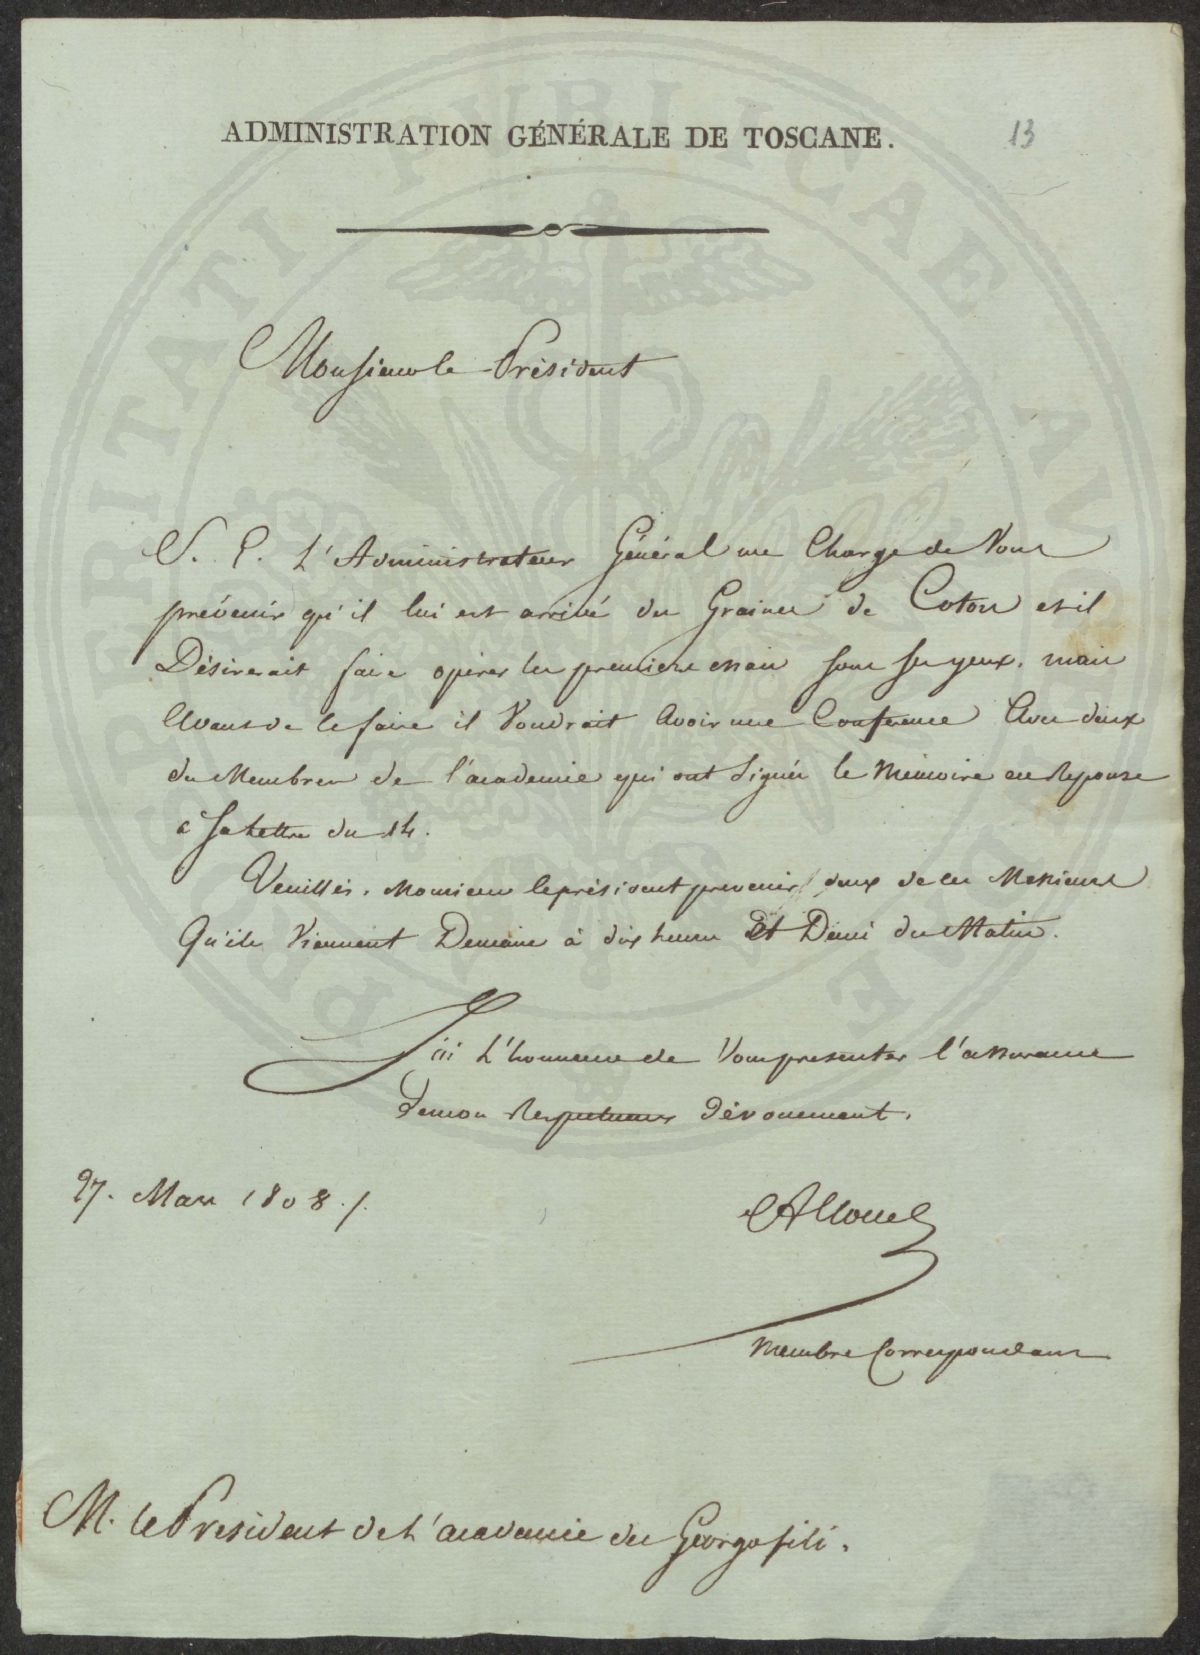 ADMINISTRATION GÉNÉRALE DE TOSCANE.
13
Monsieur le Président
S. E. L'Administrateur Général me Charge de Vous
prévenir qu'il lui est arrivé des Graines de Coton et il
Désirerait faire opérer les premiers essais sous ses yeux. mais
Avant de le faire il Voudrait Avoir une Conference Avec deux
des Membres de l'academie qui ont Signés le Mémoire en Reponse
a Sa Lettre du 14.
Veuilléz, Monsieur le président prevenir deux de ces Messieurs
Qu'ils Viennent Demain à dix heures Et Demi du Matin.
J'ai L'honneur de Vous presenter l'assurance
de mon Respectueux dévouement.
27. Mars 1808 /.
Membre Correspondant
M. le President de L'academie des Georgofili.
PROSPERITATI PUBLICAE AUGENDAE